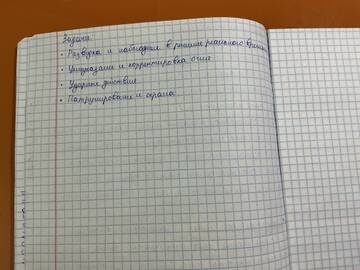 Задачи
• Разведка и наблюдение в режиме реального времени
• Целеуказание и корректировка огня
• Ударные действия
• Патрулирование и охрана